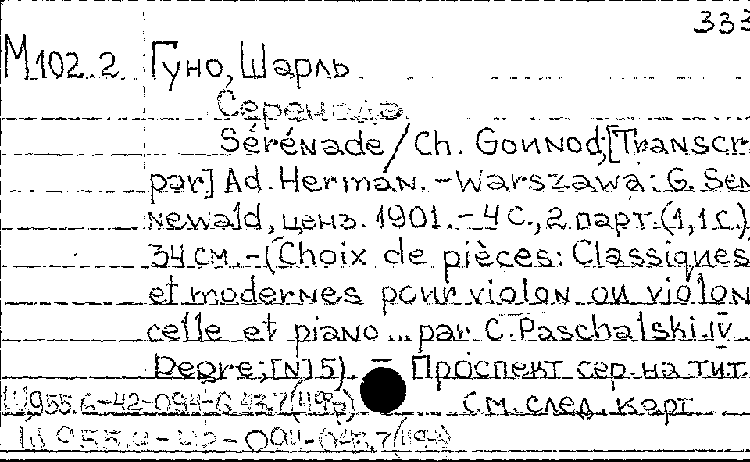 333
М 102.2 Гуно, Шарль
Серенада
Sérénade / Ch. Gounod; [Transcr.
par] Ad. Herman. – Warszawa: G. Sen
newald, ценз. 1901. – 4 с., 2 парт. (1,1 с.)
34 см. – (Choix de pièces: Classiques
et modernes pour violon ou violon
celle et piano... par C. Paschalski. IV
Degre; [N] 5). – Проспект сер. на тит.
955.6-42-094-043.7(1193)
См. след. карт.